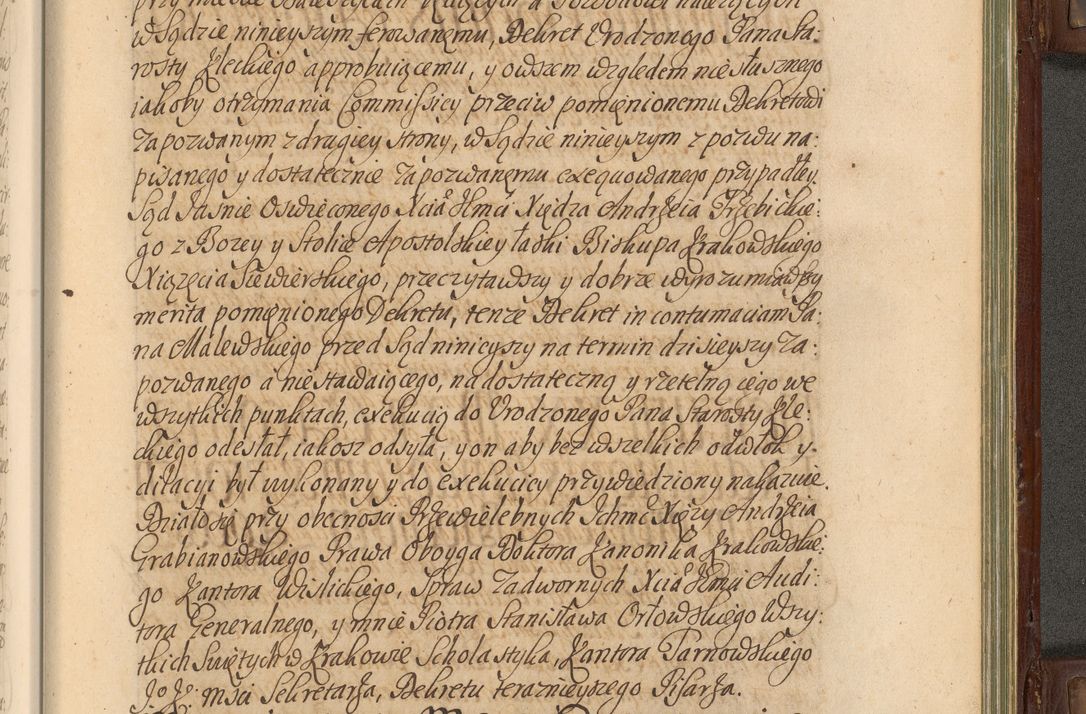 w Sądzie ninieyszym ferowanemu, Dekret Urodzonego Pana Sta:
rosty Kleckiego approbuiącemu, y owszem względem niesłusznego
iakoby otrzymania Commissiey przeciw pomęnionemu Dekretowi
zapozwanym z drugiey strony, w Sądzie ninieyszym z pozwu na:
piwanego y dostatecznie zapozwanemu exequowanego przypadłey.
Sąd Jaśnie Oswieconego Xcia Jmci Xiędza Andrzeia Trzebickie:
go z Bozey y Stolic Apostolskiey łaski Biskupa Krakowskiego
Xiązęcia Siewierskiego, przeczytawszy y dobrze wyrozumiawszy
menta pomęnionego Dekretu, tenze Dekret in contumaciam Pa:
na Malewskiego przed Sąd ninieyszy na termin dzisieyszy za:
pozwanego a niestawaiącego, na dostateczną y rzetelną iego we
wszytkich punktach, exekucią do Urodzonego Pana Starosty Kle:
ckiego odesłał, iakosz odsyła, y on aby bez wszelkich odwłok y
dilacyi był wykonany y do exekuciey przywiedziony nakazuie.
Działo się przy obecnosci Przewielebnych Ichmć Xięży Andrzeia
Grabianowskiego Prawa Oboyga Doktora Kanonika Krakowskie:
go Kantora Wislickiego, Spraw Zadwornych Xcia Jmci Audi:
tora Generalnego, y mnie Piotra Stanisława Orłowskiego Wszy:
tkich Swiętych w Krakowie Scholastyka, Kantora Tarnowskiego
J. K. Mści Sekretarza, Dekretu teraznieyszego Pisarza.